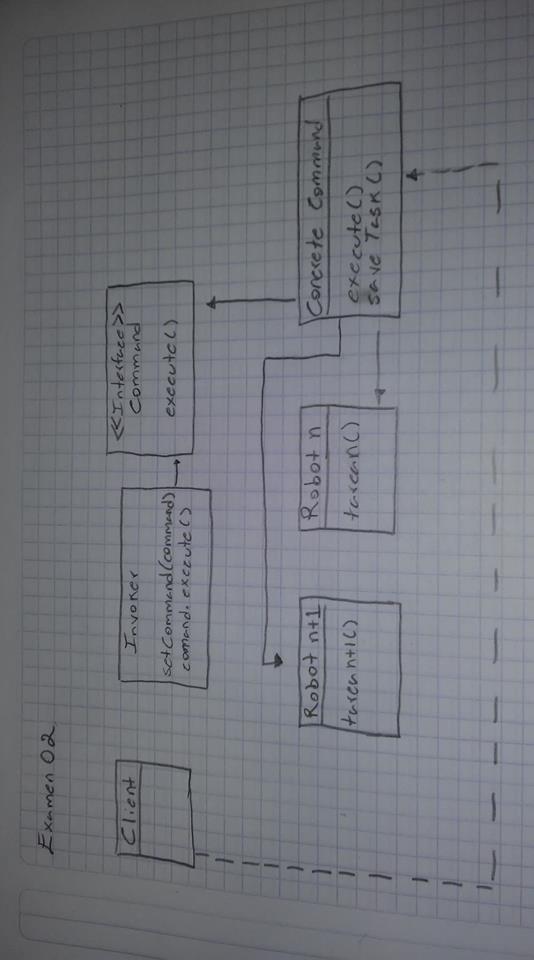 Examen 02
Client
Invoker
setCommand(command)
comand.execute()
<<Interface>>
Command
execute()
Robot n+1
tarean+1()
Robot n
tarean()
Concrete Command
execute()
save Task()